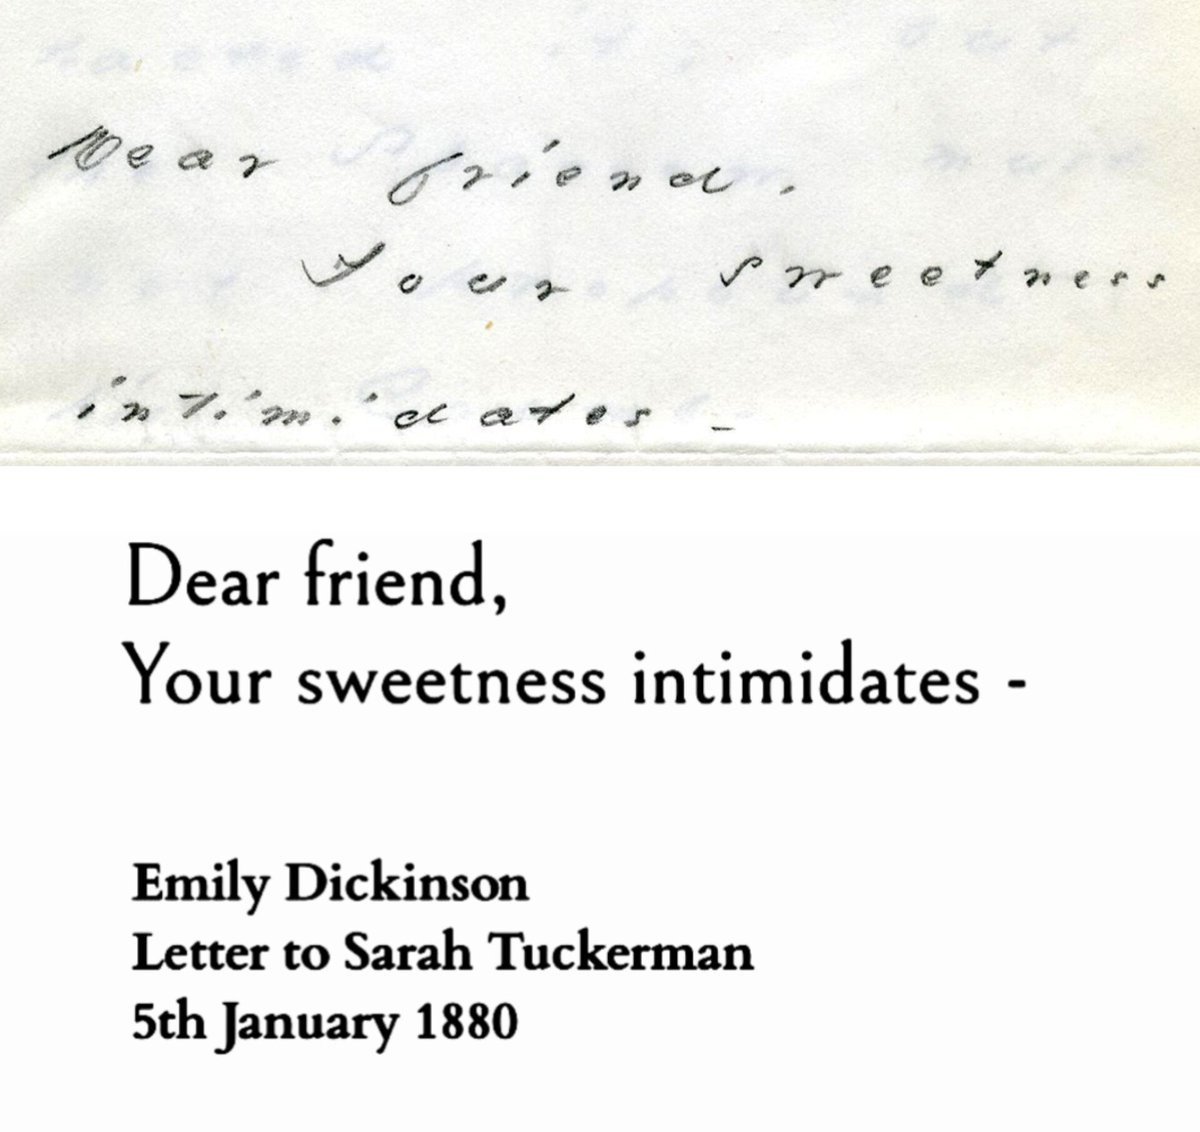 Dear friend,
Your sweetness
intimidates -
Dear friend,
Your sweetness intimidates -
Emily Dickinson
Letter to Sarah Tuckerman
5th January 1880